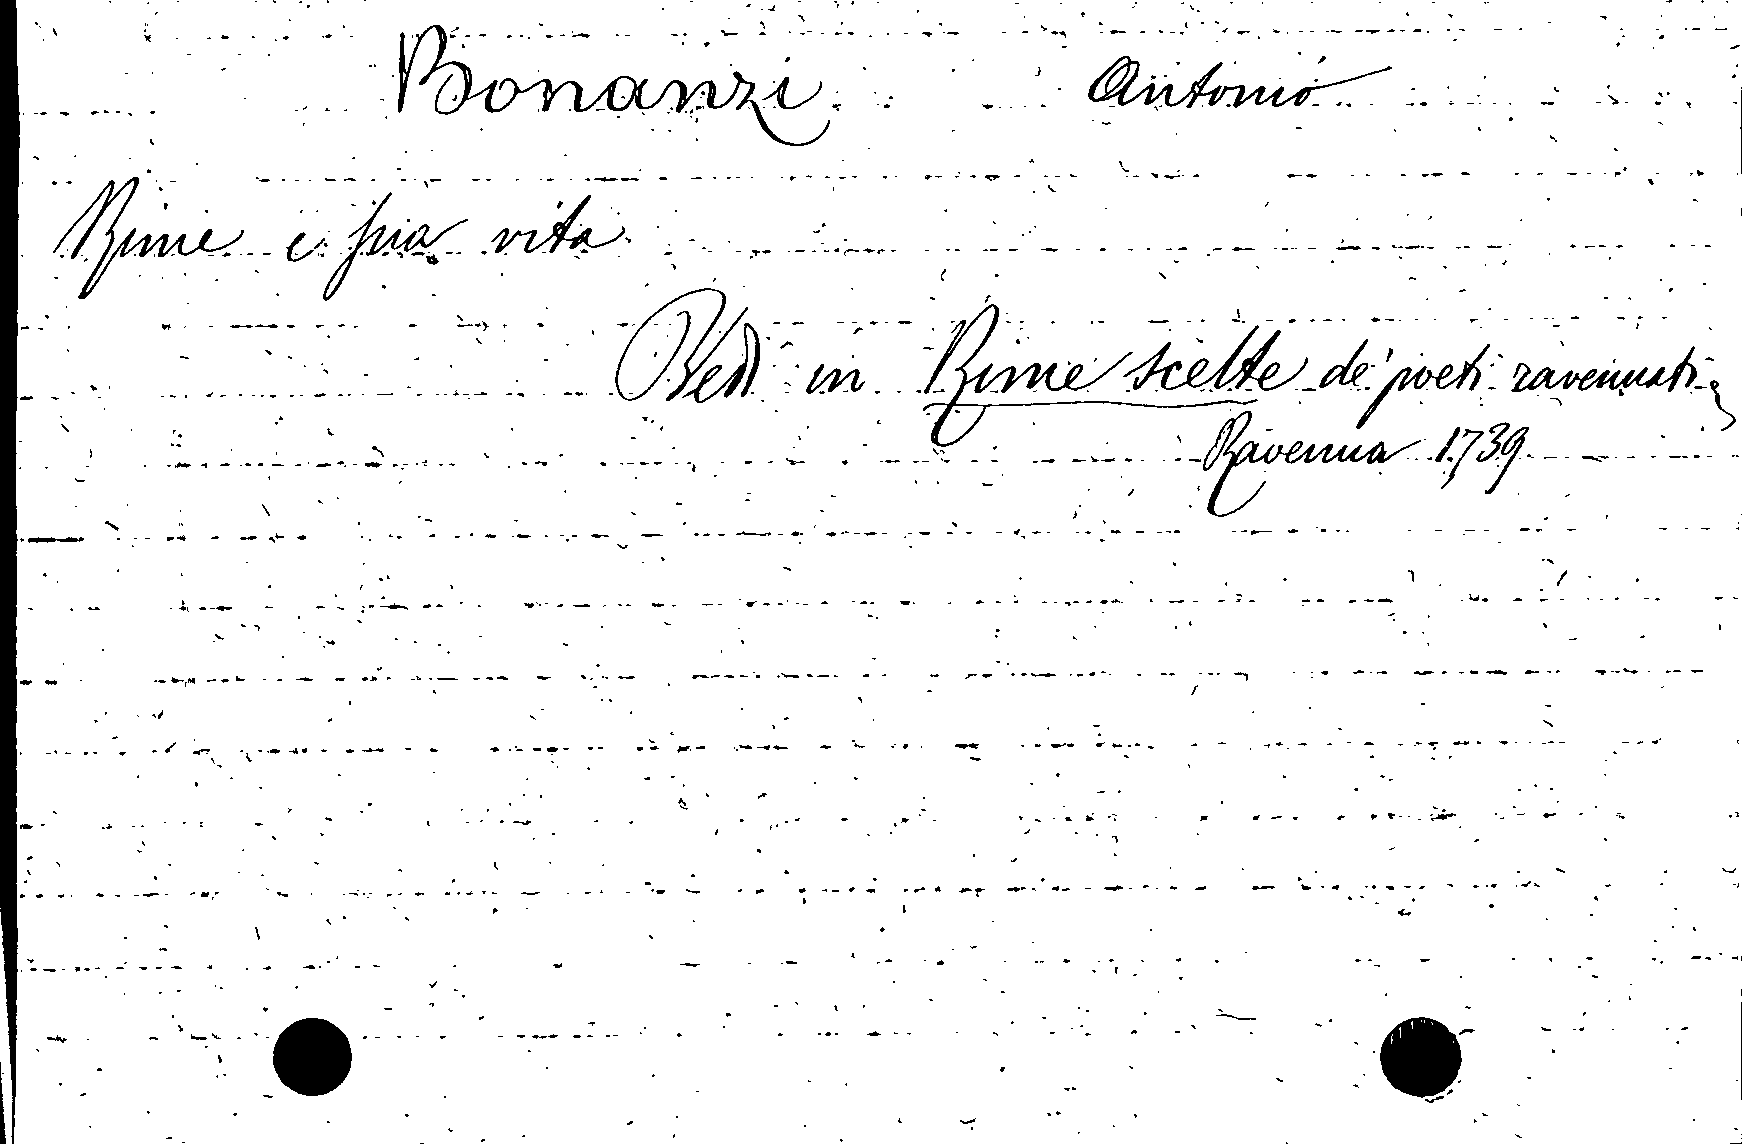 Bonanzi Antonio
Rime e sua vita
Vedi in Rime scelte de' poeti ravennati,
Ravenna 1739